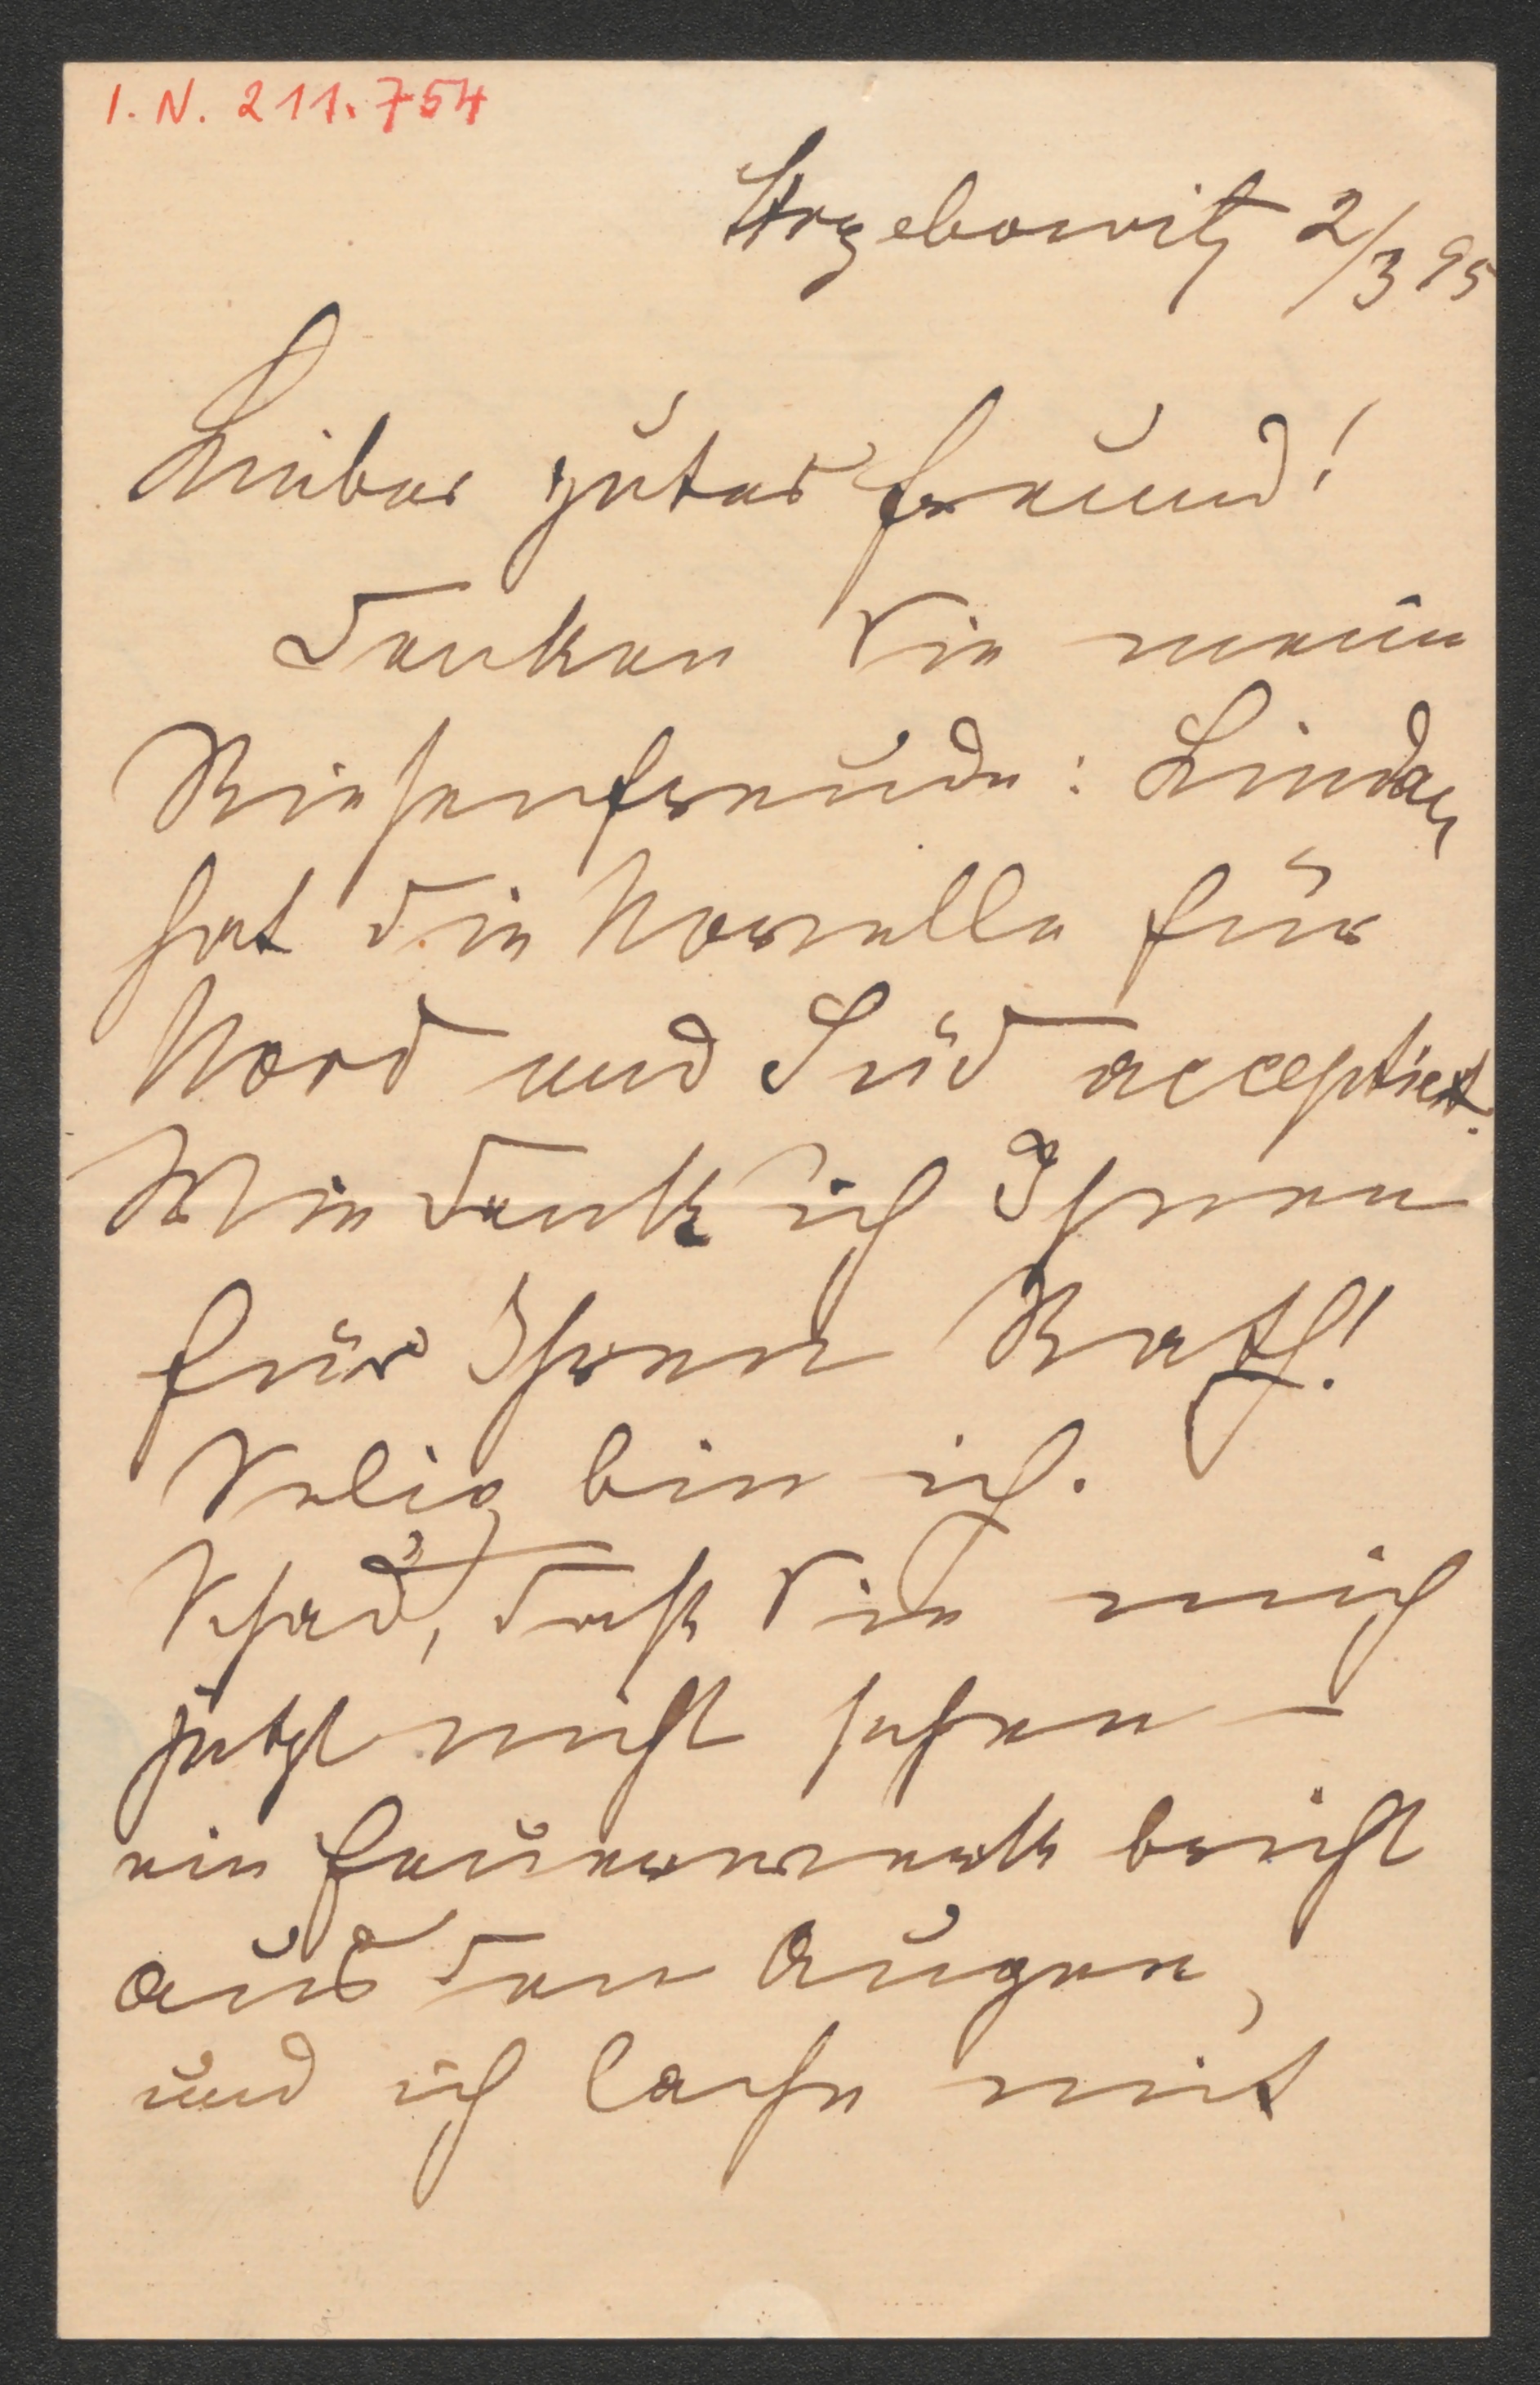 I. N. 211.754
Strzebowitz 2/3 95
Lieber guter Freund!
Denken Sie meine
Riesenfreude: Lindau
hat die Novelle für
Nord und Süd acceptiert.
Wie dank ich Ihnen
für Ihren Rath!
Selig bin ich.
Schad, daß Sie mich
jetzt nicht sehen –
ein Feuerwerk bricht
aus den Augen,
und ich lache mit